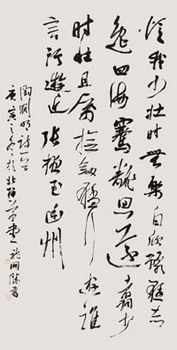 憶我少壯時無樂自欣豫猛志
逸四海騫翮思遠翥少
時壯且厲撫劍獨行遊誰
言行遊近張掖至幽州
陶淵明詩
庚寅之 於北